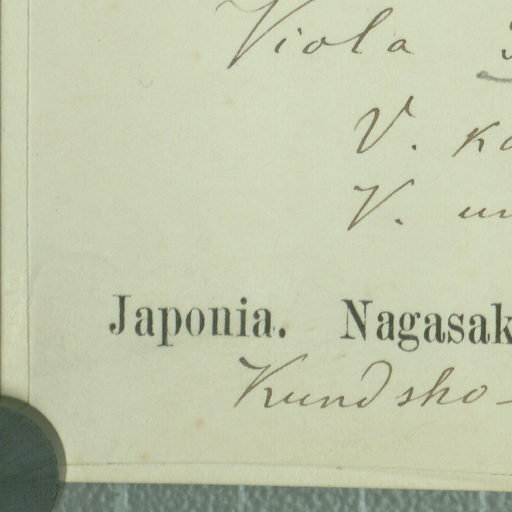 Viola
V. Ka
V. un
Japonia. Nagasak
Kundsho-